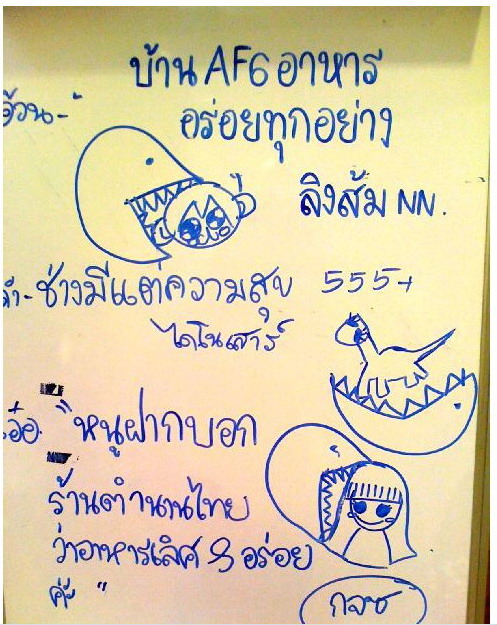 บ้าน AF6 อาหาร
อ้วน-
อร่อยทุกอย่าง
ลิงส้ม NN.
ช่างมีแต่ความสุข 555+
ไดโนเสาร์
"หนูฝากบอก
ร้านตำนานไทย
ว่าอาหารเลิศ & อร่อย
ค่ะ "
กจซ